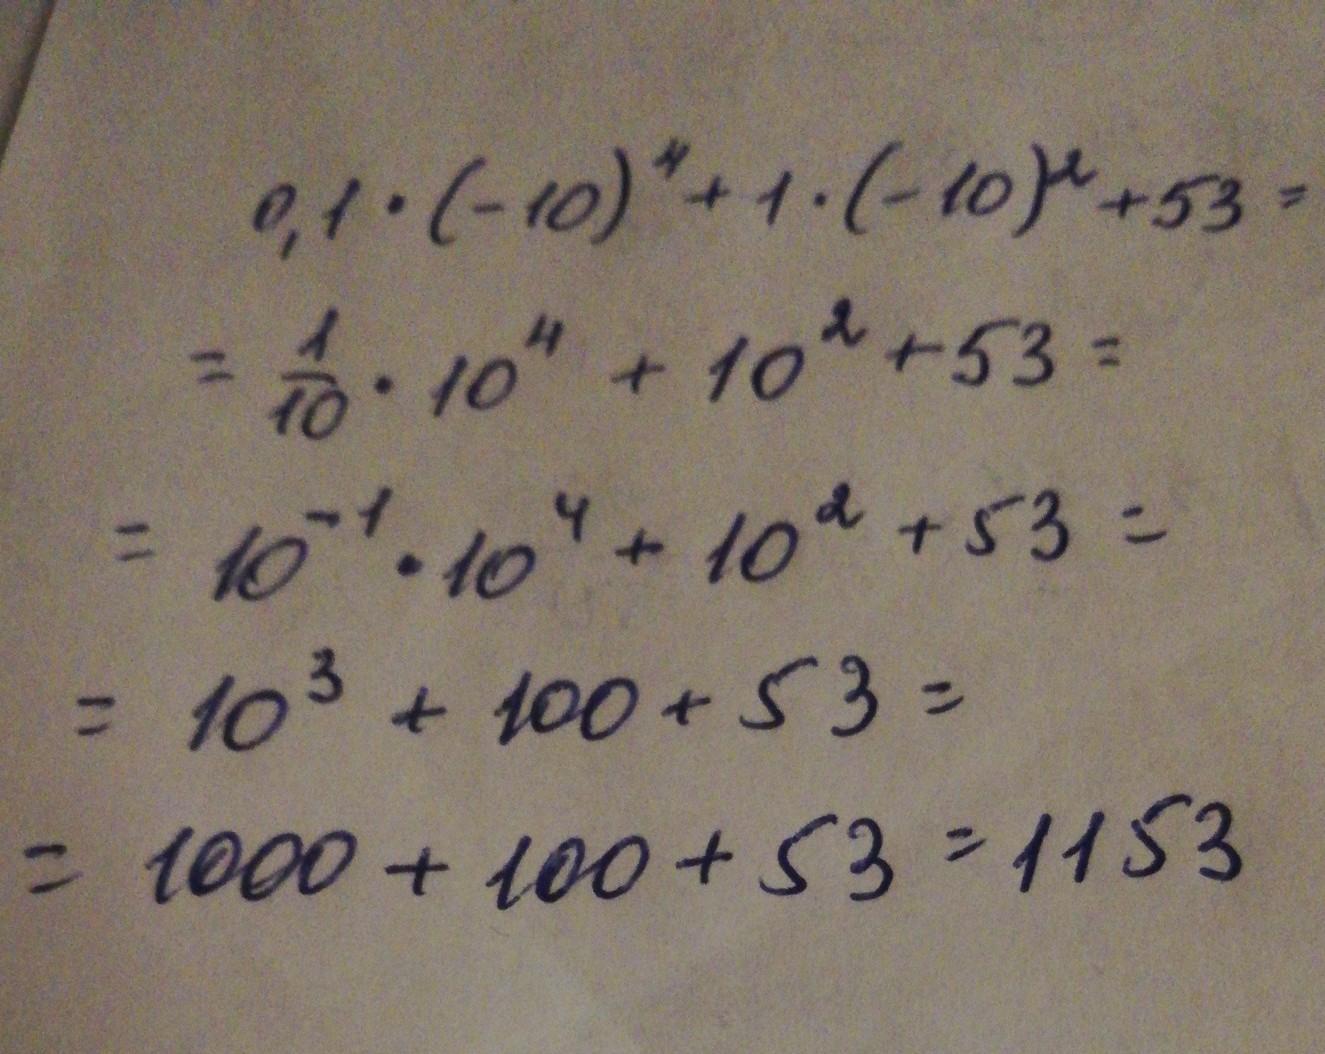 0,1 · (-10)⁴ + 1 · (-10)² + 53 =
= 1/10 · 10⁴ + 10² + 53 =
= 10⁻¹ · 10⁴ + 10² + 53 =
= 10³ + 100 + 53 =
= 1000 + 100 + 53 = 1153